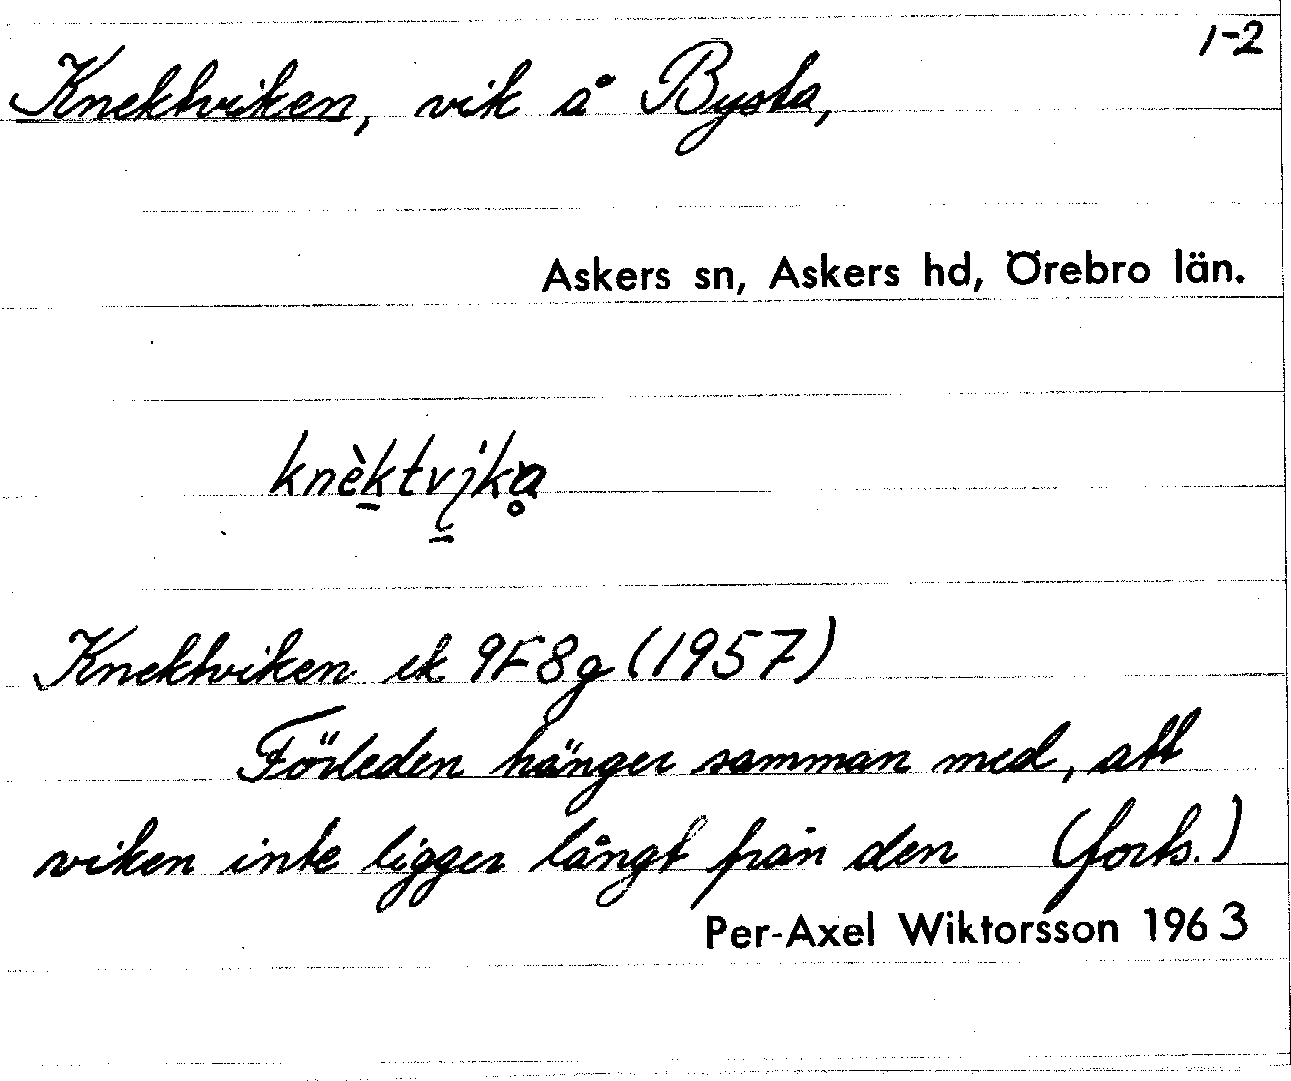 1-2
Knektviken, vik å Bysta,
Askers sn, Askers hd, Örebro län.
knèktvika
Knektviken ek 9F8g (1957)
Förleden hänger samman med, att
viken inte ligger långt från den (forts.)
Per-Axel Wiktorsson 1963